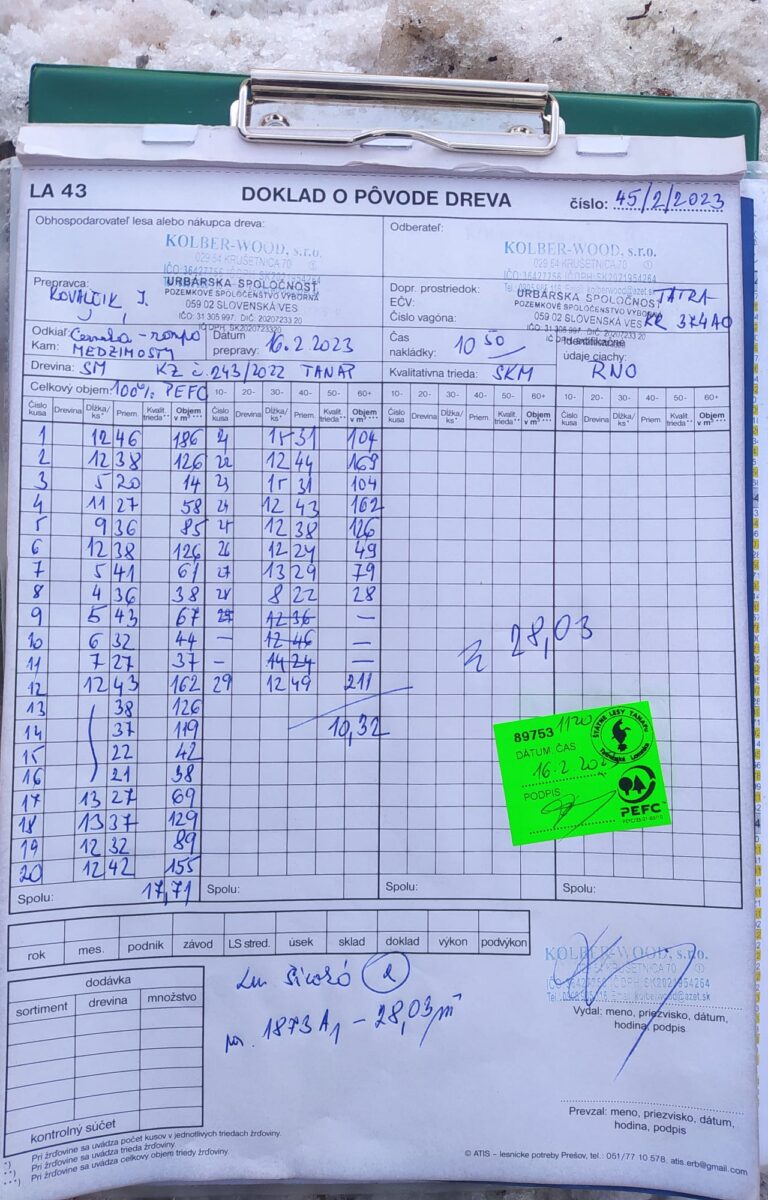 LA 43 DOKLAD O PÔVODE DREVA číslo: 45/2/2023
Obhospodarovateľ lesa alebo nákupca dreva:
KOLBER-WOOD, s.r.o.
029 64 KRUŠETNICA 70
Odberateľ:
KOLBER-WOOD, s.r.o.
029 64 KRUŠETNICA 70
Prepravca:
KOVALČIK J.
URBÁRSKA SPOLOČNOSŤ
POZEMKOVÉ SPOLOČENSTVO VÝBORNÁ
059 02 SLOVENSKÁ VES
Dopr. prostriedok: TATRA
EČV:
Číslo vagóna:
URBÁRSKA SPOLOČNOSŤ
POZEMKOVÉ SPOLOČENSTVO VÝBORNÁ
059 02 SLOVENSKÁ VES
Odkiaľ:
Kam: MEDZIMOSTY
Dátum prepravy: 16.2 2023
Čas nakládky: 10 50
údaje ciachy: RNO
Drevina: SM KZ č. 243/2022 TANAP
Kvalitatívna trieda: SKM
Celkový objem: 100% PEFC 10- 20- 30- 40- 50- 60+ 10- 20- 30- 40- 50- 60+ 10- 20- 30- 40- 50- 60+
Číslo kusa Drevina Dĺžka/ks* Priem. Kvalit. trieda** Objem v m³*** Číslo kusa Drevina Dĺžka/ks* Priem. Kvalit. trieda** Objem v m³*** Číslo kusa Drevina Dĺžka/ks* Priem. Kvalit. trieda** Objem v m³*** Číslo kusa Drevina Dĺžka/ks* Priem. Kvalit. trieda** Objem v m³***
1 12 46 186 31 104
2 12 38 126 22 12 44 169
3 5 20 14 23 31 104
4 11 27 58 24 12 43 162
5 9 36 85 25 12 38 126
6 12 38 126 26 12 24 49
7 5 41 61 27 13 29 79
8 4 36 38 28 8 22 28
9 5 43 67 12 36 —
10 6 32 44 — 12 46 —
11 7 27 37 — 14 24 —
12 12 43 162 29 12 49 211
13 38 126
14 37 119 10,32
15 22 42
16 21 38
17 13 27 69
18 13 37 129
19 12 32 89
20 12 42 155
28,03
89753 1120
DÁTUM ČAS
16.2
PODPIS
ŠTÁTNE LESY TANAPu
Tatranská Lomnica
PEFC
Spolu: 17,71 Spolu: Spolu: Spolu:
rok mes. podnik závod LS stred. úsek sklad doklad výkon podvýkon
dodávka
sortiment drevina množstvo
kontrolný súčet
1873 A1 – 28,03 m³
KOLBER-WOOD, s.r.o.
Vydal: meno, priezvisko, dátum,
hodina, podpis
Prevzal: meno, priezvisko, dátum,
hodina, podpis
*) Pri žrďovine sa uvádza počet kusov v jednotlivých triedach žrďoviny.
**) Pri žrďovine sa uvádza trieda žrďoviny.
***) Pri žrďovine sa uvádza celkový objem triedy žrďoviny.
© ATIS – lesnícke potreby Prešov, tel.: 051/77 10 578, atis.erb@gmail.com